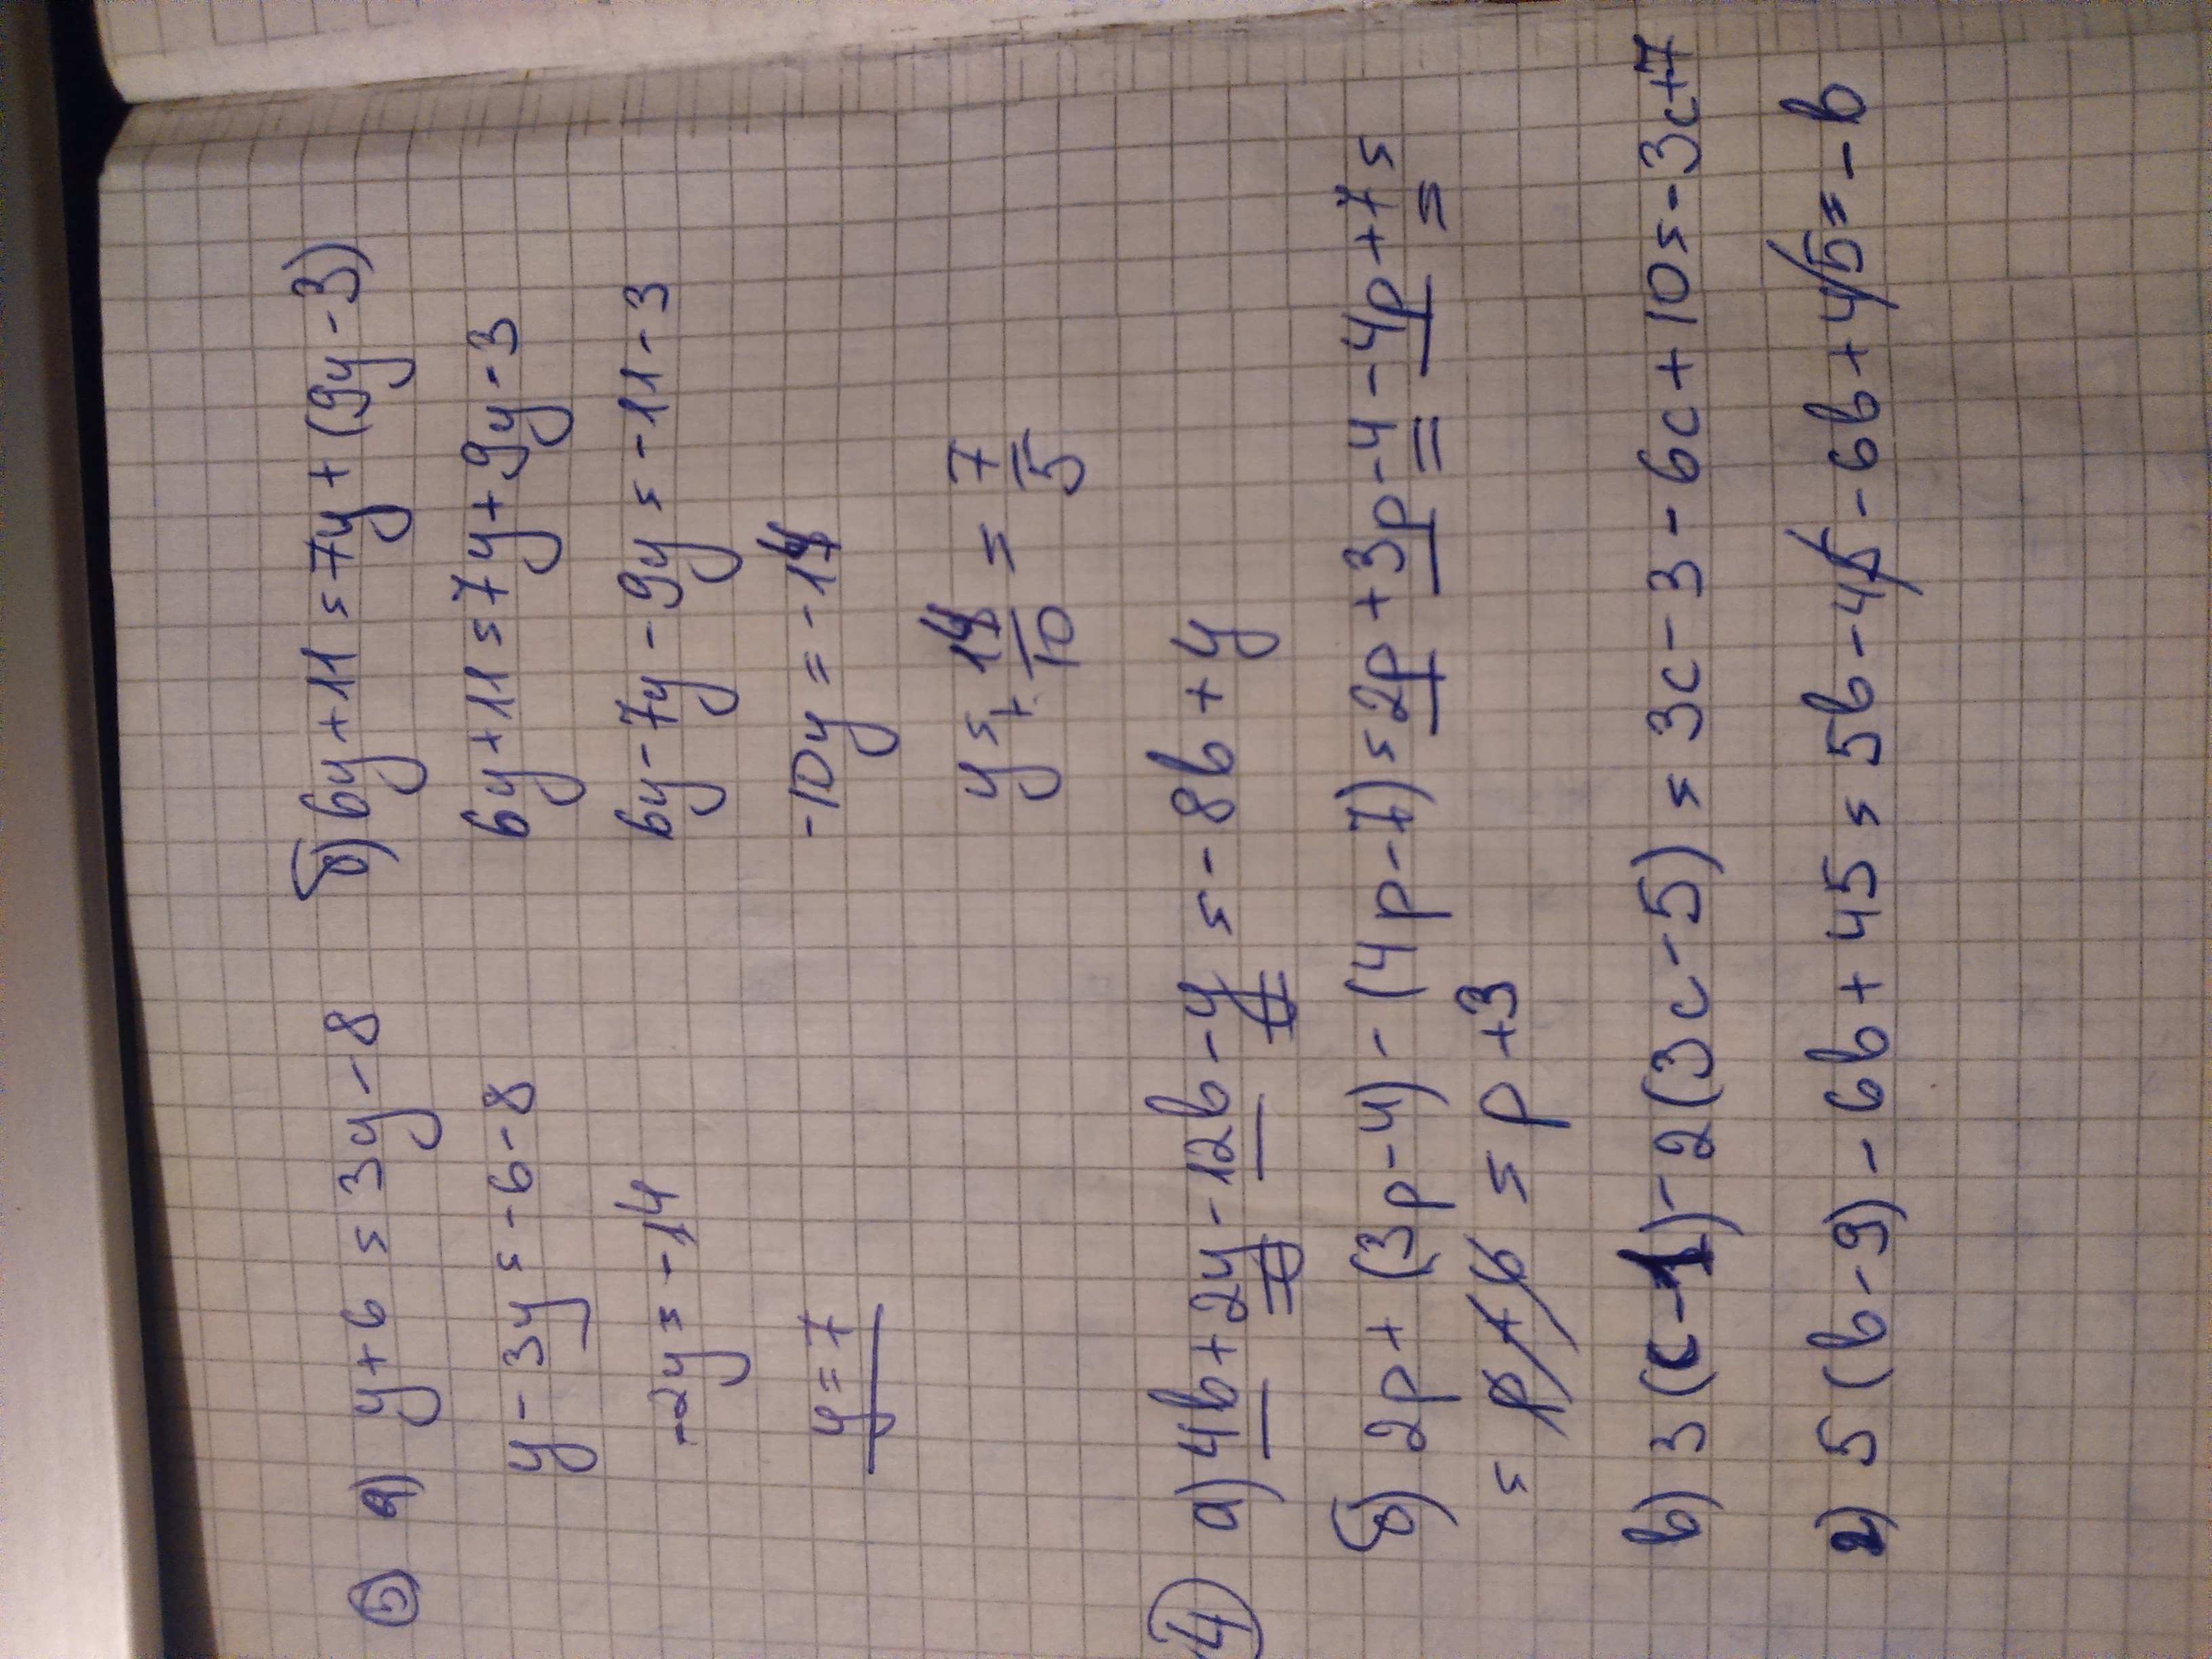 5) а) y + 6 = 3y - 8
y - 3y = -6 - 8
-2y = -14
y = 7
б) 6y + 11 = 7y + (9y - 3)
6y + 11 = 7y + 9y - 3
6y - 7y - 9y = -11 - 3
-10y = -14
y = 14/10 = 7/5
4) а) 4b + 2y - 12b - y = -8b + y
б) 2p + (3p - 4) - (4p - 7) = 2p + 3p - 4 - 4p + 7 =
= p + 3
в) 3(c - 1) - 2(3c - 5) = 3c - 3 - 6c + 10 = -3c + 7
г) 5(b - 9) - 6b + 45 = 5b - 45 - 6b + 45 = -b